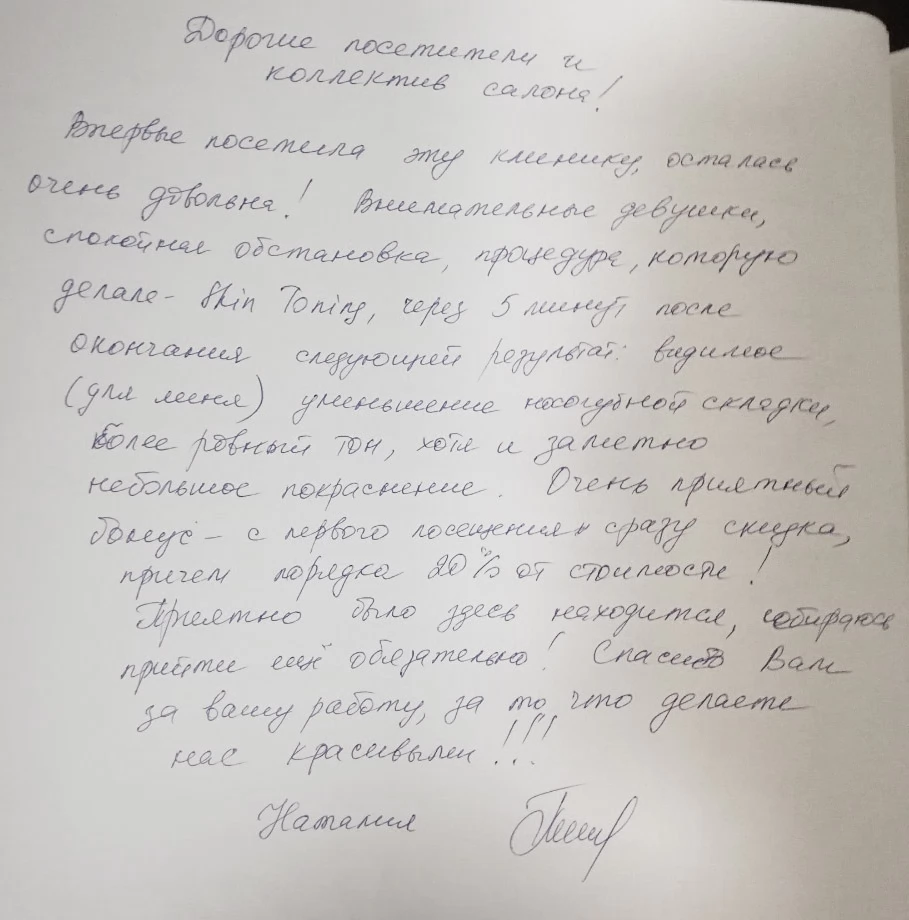 Дорогие посетители и
коллектив салона!
Впервые посетила эту клинику, осталась
очень довольна! Внимательные девушки,
спокойная обстановка, процедура, которую
делала - Skin Toning, через 5 минут после
окончания следующей результат: видимое
(для меня) уменьшение носогубной складки,
более ровный тон, хотя и заметно
небольшое покраснение. Очень приятный
бонус - с первого посещения сразу скидка,
причем порядка 20% от стоимости!
Приятно было здесь находится, собираюсь
прийти ещё обязательно! Спасибо Вам
за вашу работу, за то, что делаете
нас красивыми!!!
Наталия